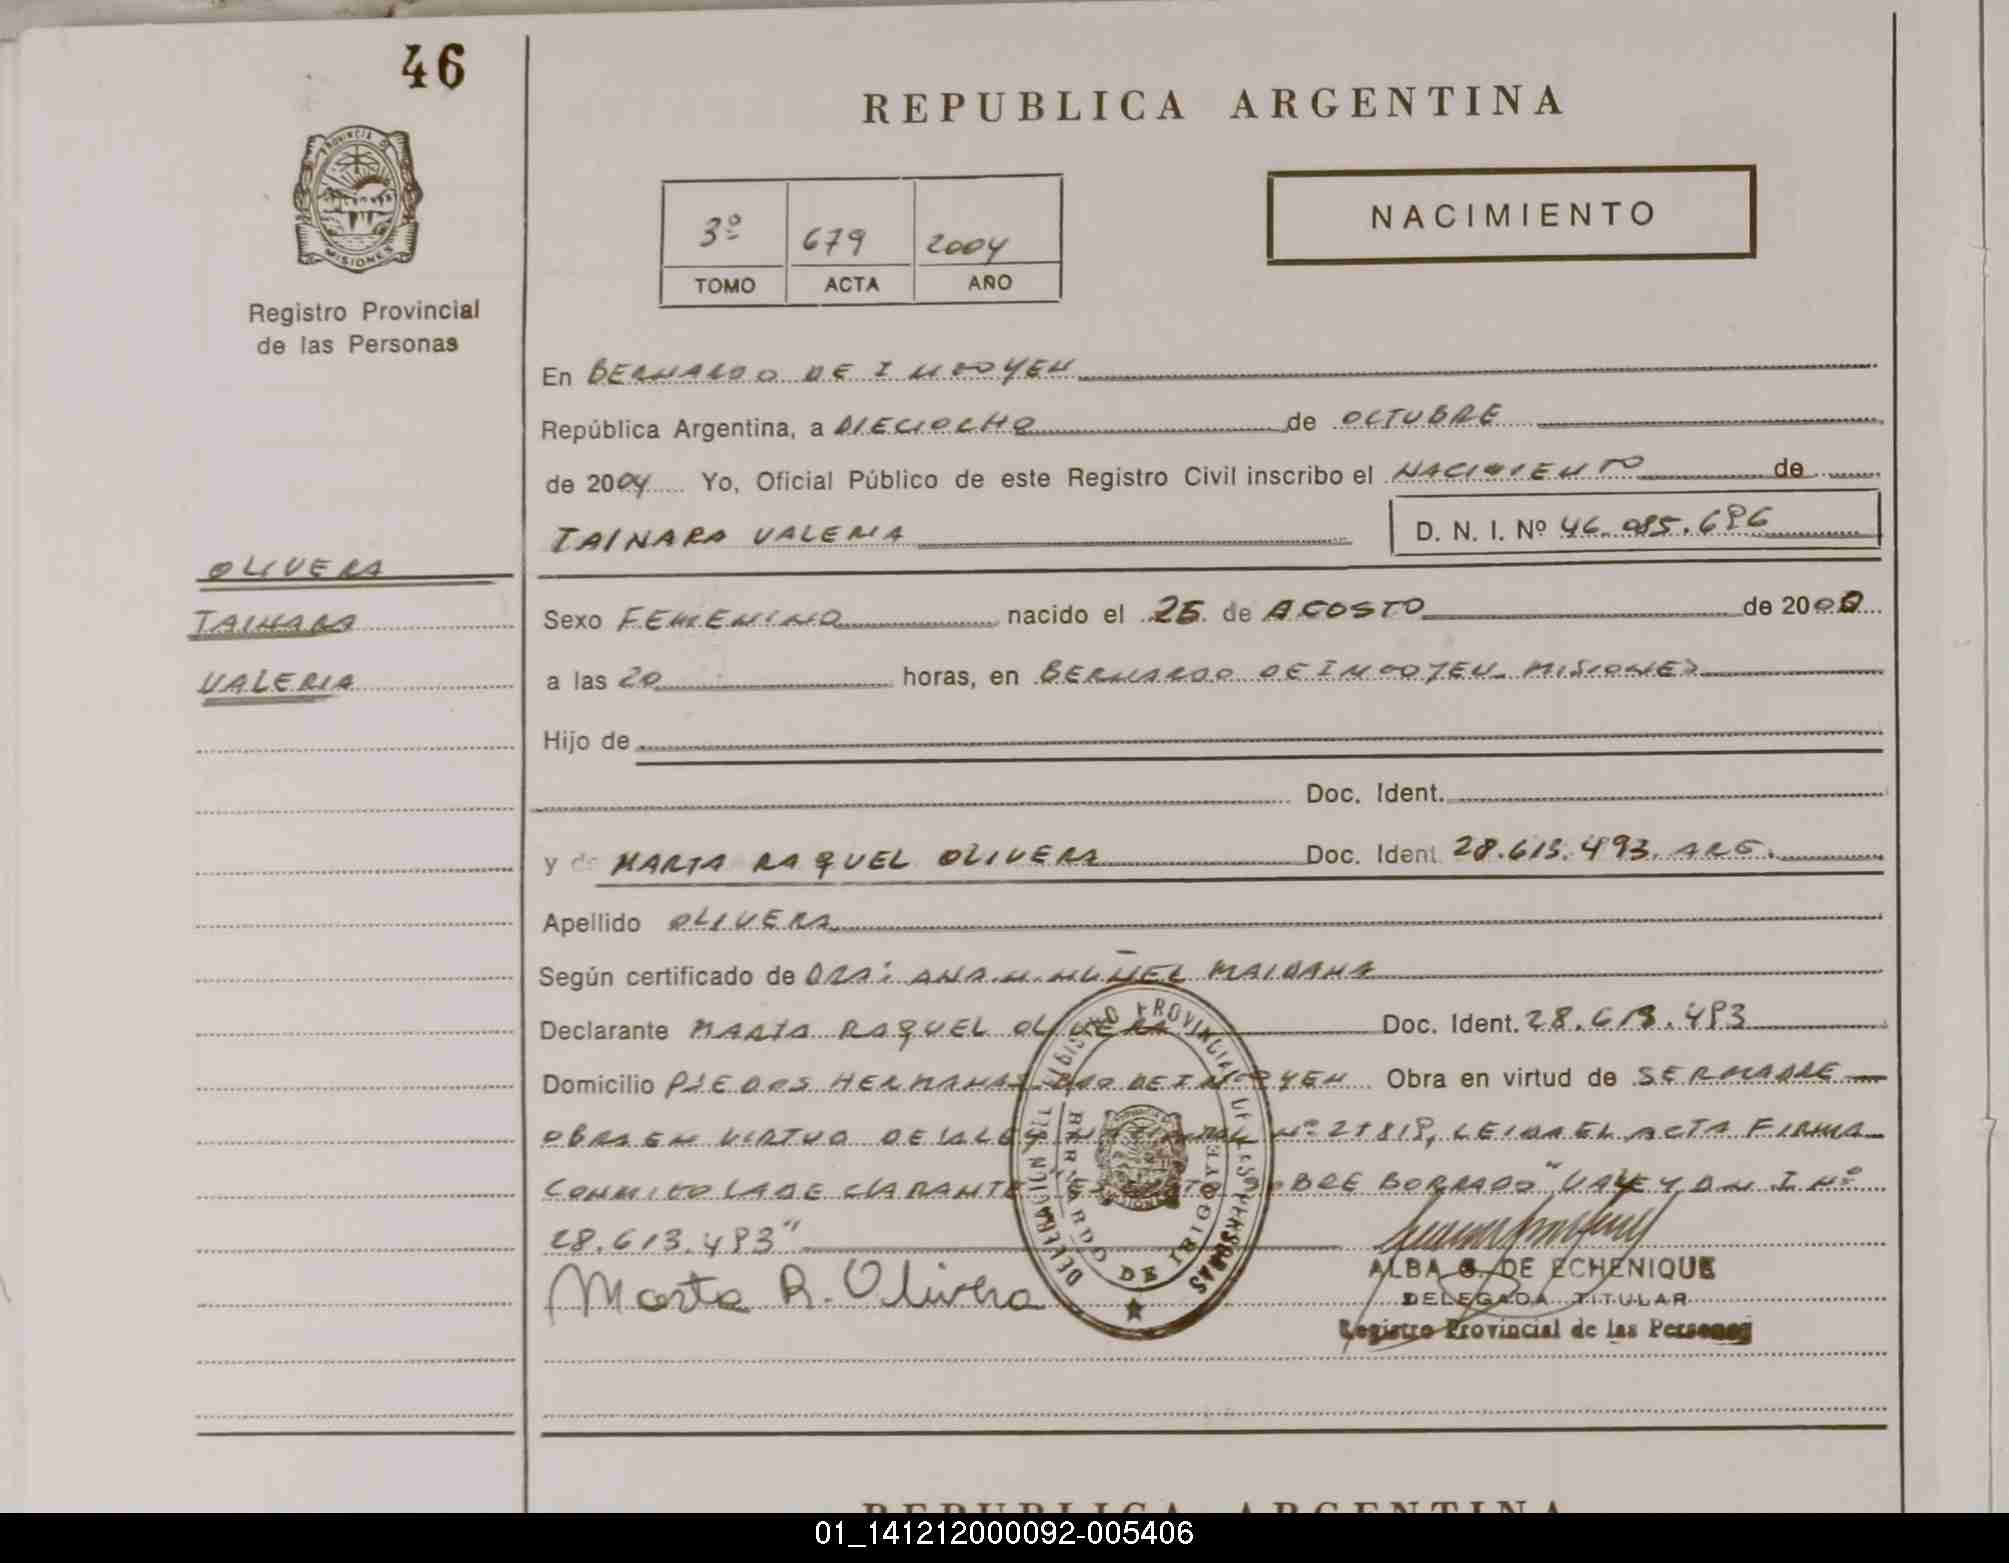 46
REPUBLICA ARGENTINA
PROVINCIA DE
MISIONES
NACIMIENTO
3º 679 2004
TOMO ACTA AÑO
Registro Provincial
de las Personas
En BERNARDO DE IRIGOYEN
República Argentina, a DIECIOCHO de OCTUBRE
de 2004 Yo, Oficial Público de este Registro Civil inscribo el NACIMIENTO de
TAINARA VALERIA D. N. I. Nº 46.085.686
OLIVERA
TAINARA
VALERIA
Sexo FEMENINO nacido el 25 de AGOSTO de 2000
a las 20 horas, en BERNARDO DE IRIGOYEN MISIONES
Hijo de
Doc. Ident.
y de MARTA RAQUEL OLIVERA Doc. Ident. 28.613.493. ARG.
Apellido OLIVERA
Según certificado de DRA: ANA MAIDANA
Declarante MARTA RAQUEL OLIVERA Doc. Ident. 28.613.493
Domicilio PJE DOS HERMANAS BDO DE IRIGOYEN Obra en virtud de SER MADRE
OBRA EN VIRTUD DE LA LEY Nº 25818, LEIDA EL ACTA FIRMA
CONMIGO LA DECLARANTE SOBRE BORRADO "VALE Y DNI Nº
28.613.493"
Marta R. Olivera
REGISTRO PROVINCIAL DE LAS PERSONAS
DELEGACION
BERNARDO DE IRIGOYEN
ALBA DE ECHENIQUE
DELEGADA TITULAR
Registro Provincial de las Personas
REPUBLICA ARGENTINA
01_141212000092-005406